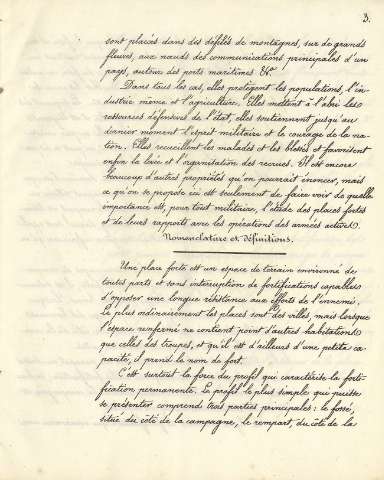 3.
sont placés dans des défilés de montagnes, sur de grands
fleuves, aux nœuds des communications principales d'un
pays, autour des ports maritimes &c.
Dans tous les cas, elles protègent les populations, l'in-
dustrie même et l'agriculture. Elles mettent à l'abri les
ressources défensives de l'état, elles soutiennent jusqu'au
dernier moment l'esprit militaire et le courage de la na-
tion. Elles recueillent les malades et les blessés et favorisent
enfin la levée et l'organisation des recrues. Il est encore
beaucoup d'autres propriétés qu'on pourrait énoncer, mais
ce qu'on se propose ici est seulement de faire voir de quelle
importance est, pour tout militaire, l'étude des places fortes
et de leurs rapports avec les opérations des armées actives.
Nomenclature et définitions.
Une place forte est un espace de terrain environné de
toutes parts et sans interruption de fortifications capables
d'opposer une longue résistance aux efforts de l'ennemi.
Le plus ordinairement les places sont des villes, mais lorsque
l'espace renfermé ne contient point d'autres habitations
que celles des troupes, et qu'il est d'ailleurs d'une petite ca-
pacité, il prend le nom de fort.
C'est surtout la force du profil qui caractérise la forti-
fication permanente. Le profil le plus simple qui puisse
se présenter comprend trois parties principales : le fossé,
situé du côté de la campagne, le rempart, du côté de la